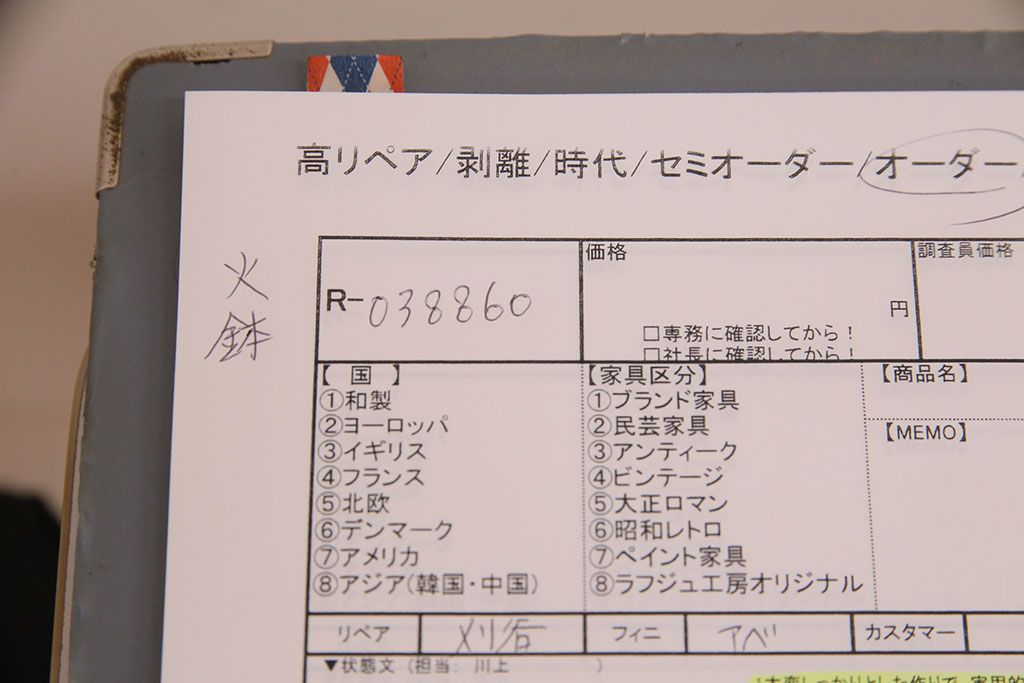 高リペア/剥離/時代/セミオーダー/オーダー/
火鉢
R-038860
価格
円
□専務に確認してから！
□社長に確認してから！
調査員価格
【 国 】
①和製
②ヨーロッパ
③イギリス
④フランス
⑤北欧
⑥デンマーク
⑦アメリカ
⑧アジア(韓国・中国)
【家具区分】
①ブランド家具
②民芸家具
③アンティーク
④ビンテージ
⑤大正ロマン
⑥昭和レトロ
⑦ペイント家具
⑧ラフジュ工房オリジナル
【商品名】
【MEMO】
リペア 刈谷 フィニ アベ カスタマー
▼状態文（担当: 川上 ）
しっかりとした作りで、実用的